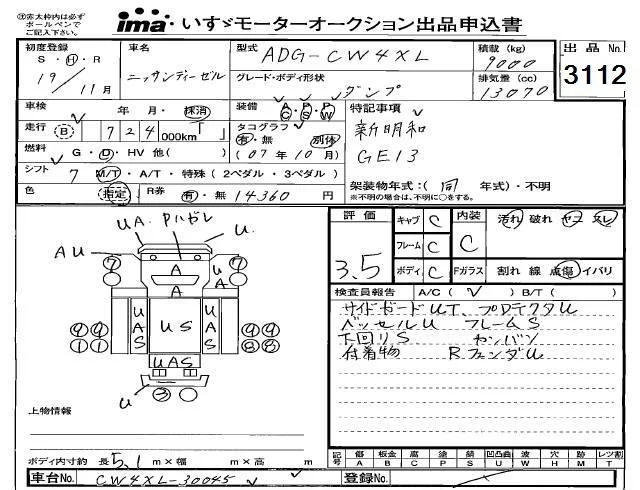 ㊟赤太枠内は必ず
ボールペンで
ご記入下さい。
ima いすゞモーターオークション出品申込書
初度登録 車名 型式 ADG-CW4XL 積載 (kg) 9000 出品 No.
S・H・R 19/11月 ニッサンディーゼル グレード・ボディ形状 ダンプ 排気量 (cc) 13070 3112
車検 年 月・抹消 装備 AC PS PW 特記事項
走行 B 724 000km「 」 タコグラフ 有・無 別体 新明和
燃料 G・D・HV 他( ) (07年10月) GE13
シフト 7 M/T・A/T・特殊(2ペダル・3ペダル)
架装物年式:(同 年式)・不明
色 指定 R券 有・無 14360 円 ※不明の場合は、不明に○をする。
評価 3.5 キャブ C 内装 C 汚れ 破れ ヤコ スレ
フレーム C
ボディ C Fガラス 割れ 線 点傷 イバリ
検査員報告 A/C( ✓ ) B/T( )
サイドガードUT、プロテクタU
ベッセルU フレームS
下回りS カンバン
付着物 RフェンダU
UA. Pハガレ U.
AU 7 A 7
A
UAS US UAS
99 11 99 88
UAS
U 3
上物情報
ボディ内寸約 長 5.1 m×幅 m×高 m
記号 傷 A 板金 B 腐 C 塗 P 錆 S 凹凸曲 U 波 W 穴 H 跡 M レツ割 T
車台No. CW4XL-30045 登録No.